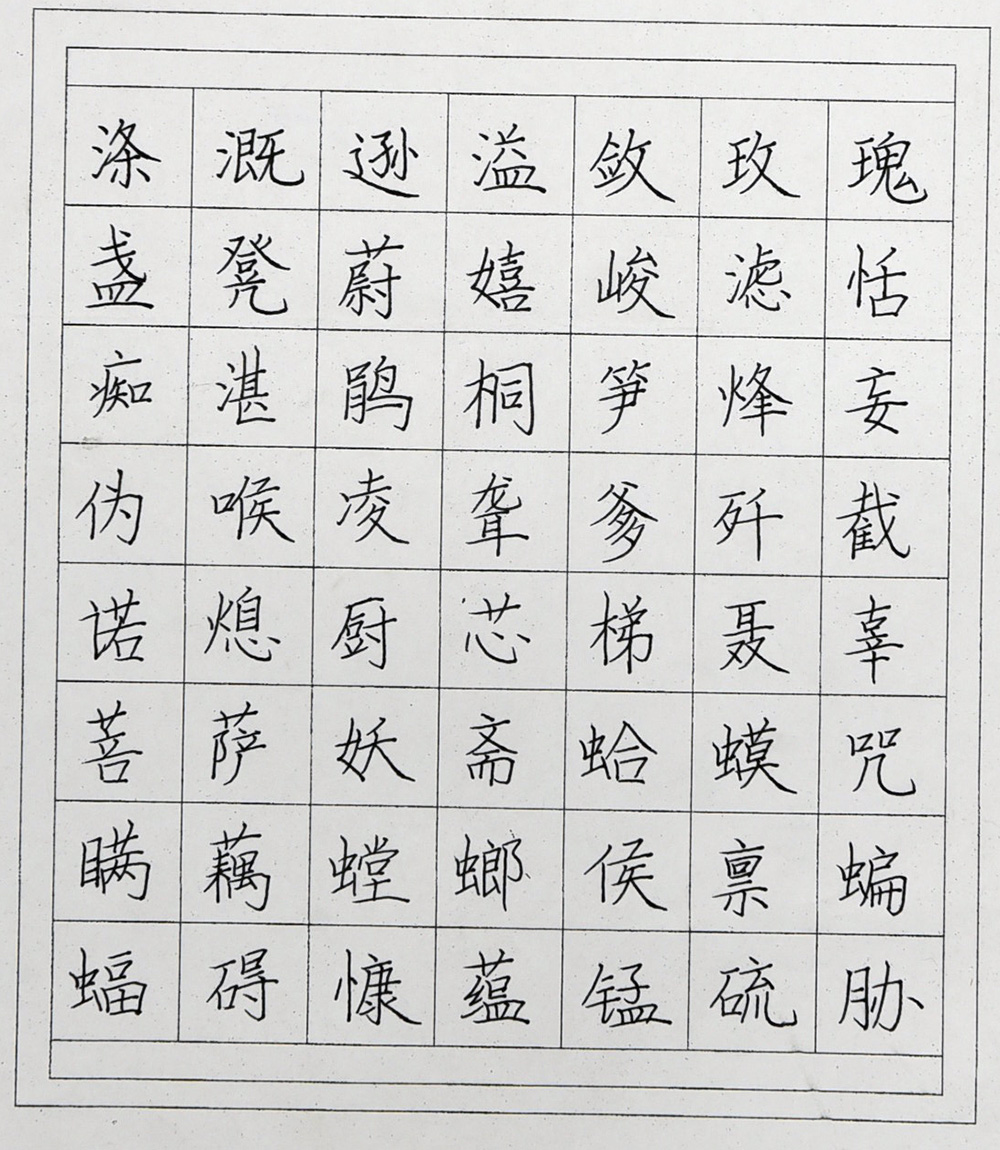 涤溉逊溢敛玫瑰
盏凳蔚嬉峻滤恬
痴湛鹃桐笋烽妄
伪喉凌聋爹歼截
诺熄厨芯梯聂辜
菩萨妖斋蛤蟆咒
瞒藕螳螂侯禀蝙
蝠碍慷蕴锰硫胁